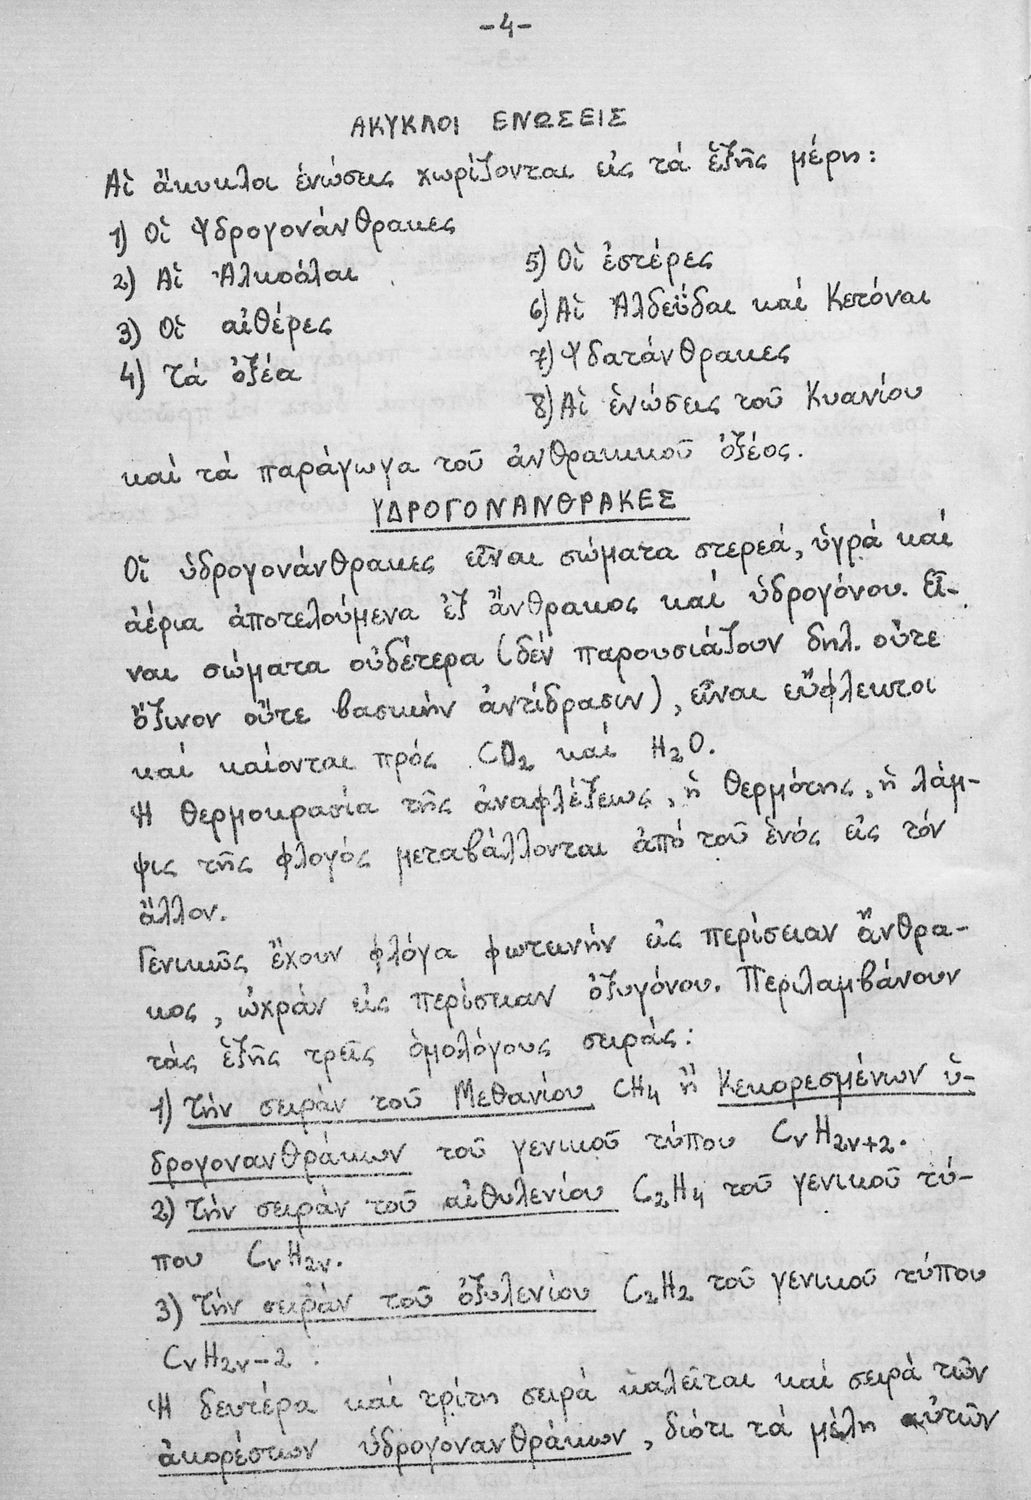 -4-
ΑΚΥΚΛΟΙ ΕΝΩΣΕΙΣ
Αἱ ἄκυκλοι ἑνώσεις χωρίζονται εἰς τά ἑξῆς μέρη:
1) Οἱ Ὑδρογονάνθρακες
2) Αἱ Ἀλκοόλαι
3) Οἱ αἰθέρες
4) Τά ὀξέα
5) Οἱ ἐστέρες
6) Αἱ Ἀλδεΰδαι καί Κετόναι
7) Ὑδατάνθρακες
8) Αἱ ἑνώσεις τοῦ Κυανίου
καί τά παράγωγα τοῦ ἀνθρακικοῦ ὀξέος.
ΥΔΡΟΓΟΝΑΝΘΡΑΚΕΣ
Οἱ ὑδρογονάνθρακες εἶναι σώματα στερεά, ὑγρά καί
ἀέρια ἀποτελούμενα ἐξ ἄνθρακος καί ὑδρογόνου. Εἶ-
ναι σώματα οὐδέτερα (δέν παρουσιάζουν δηλ. οὔτε
ὄξινον οὔτε βασικήν ἀντίδρασιν), εἶναι εὔφλεκτοι
καί καίονται πρός CO₂ καί H₂O.
Ἡ θερμοκρασία τῆς ἀναφλέξεως, ἡ θερμότης, ἡ λάμ-
ψις τῆς φλογός μεταβάλλονται ἀπό τοῦ ἑνός εἰς τόν
ἄλλον.
Γενικῶς ἔχουν φλόγα φωτεινήν εἰς περίσειαν ἄνθρα-
κος, ὠχράν εἰς περίσειαν ὀξυγόνου. Περιλαμβάνουν
τάς ἑξῆς τρεῖς ὁμολόγους σειράς:
1) Τήν σειράν τοῦ Μεθανίου CH₄ ἤ Κεκορεσμένων ὑ-
δρογονανθράκων τοῦ γενικοῦ τύπου CνH2ν+2.
2) Τήν σειράν τοῦ αἰθυλενίου C₂H₄ τοῦ γενικοῦ τύ-
που CνH2ν.
3) Τήν σειράν τοῦ ὀξυλενίου C₂H₂ τοῦ γενικοῦ τύπου
CνH2ν-2.
Ἡ δευτέρα καί τρίτη σειρά καλεῖται καί σειρά τῶν
ἀκορέστων ὑδρογονανθράκων, διότι τά μέλη αὐτῶν